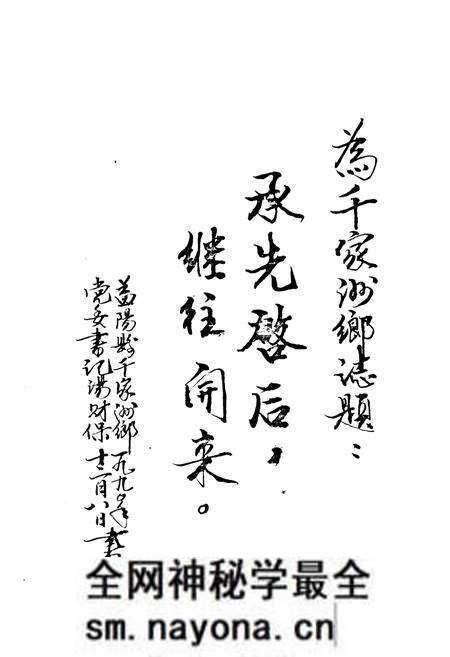 為千家洲鄉誌題：
承先啓后，
继往開来。
益陽縣千家洲鄉 一九九〇年
党委書记湯财保 月八日書
全网神秘学最全
sm.nayona.cn